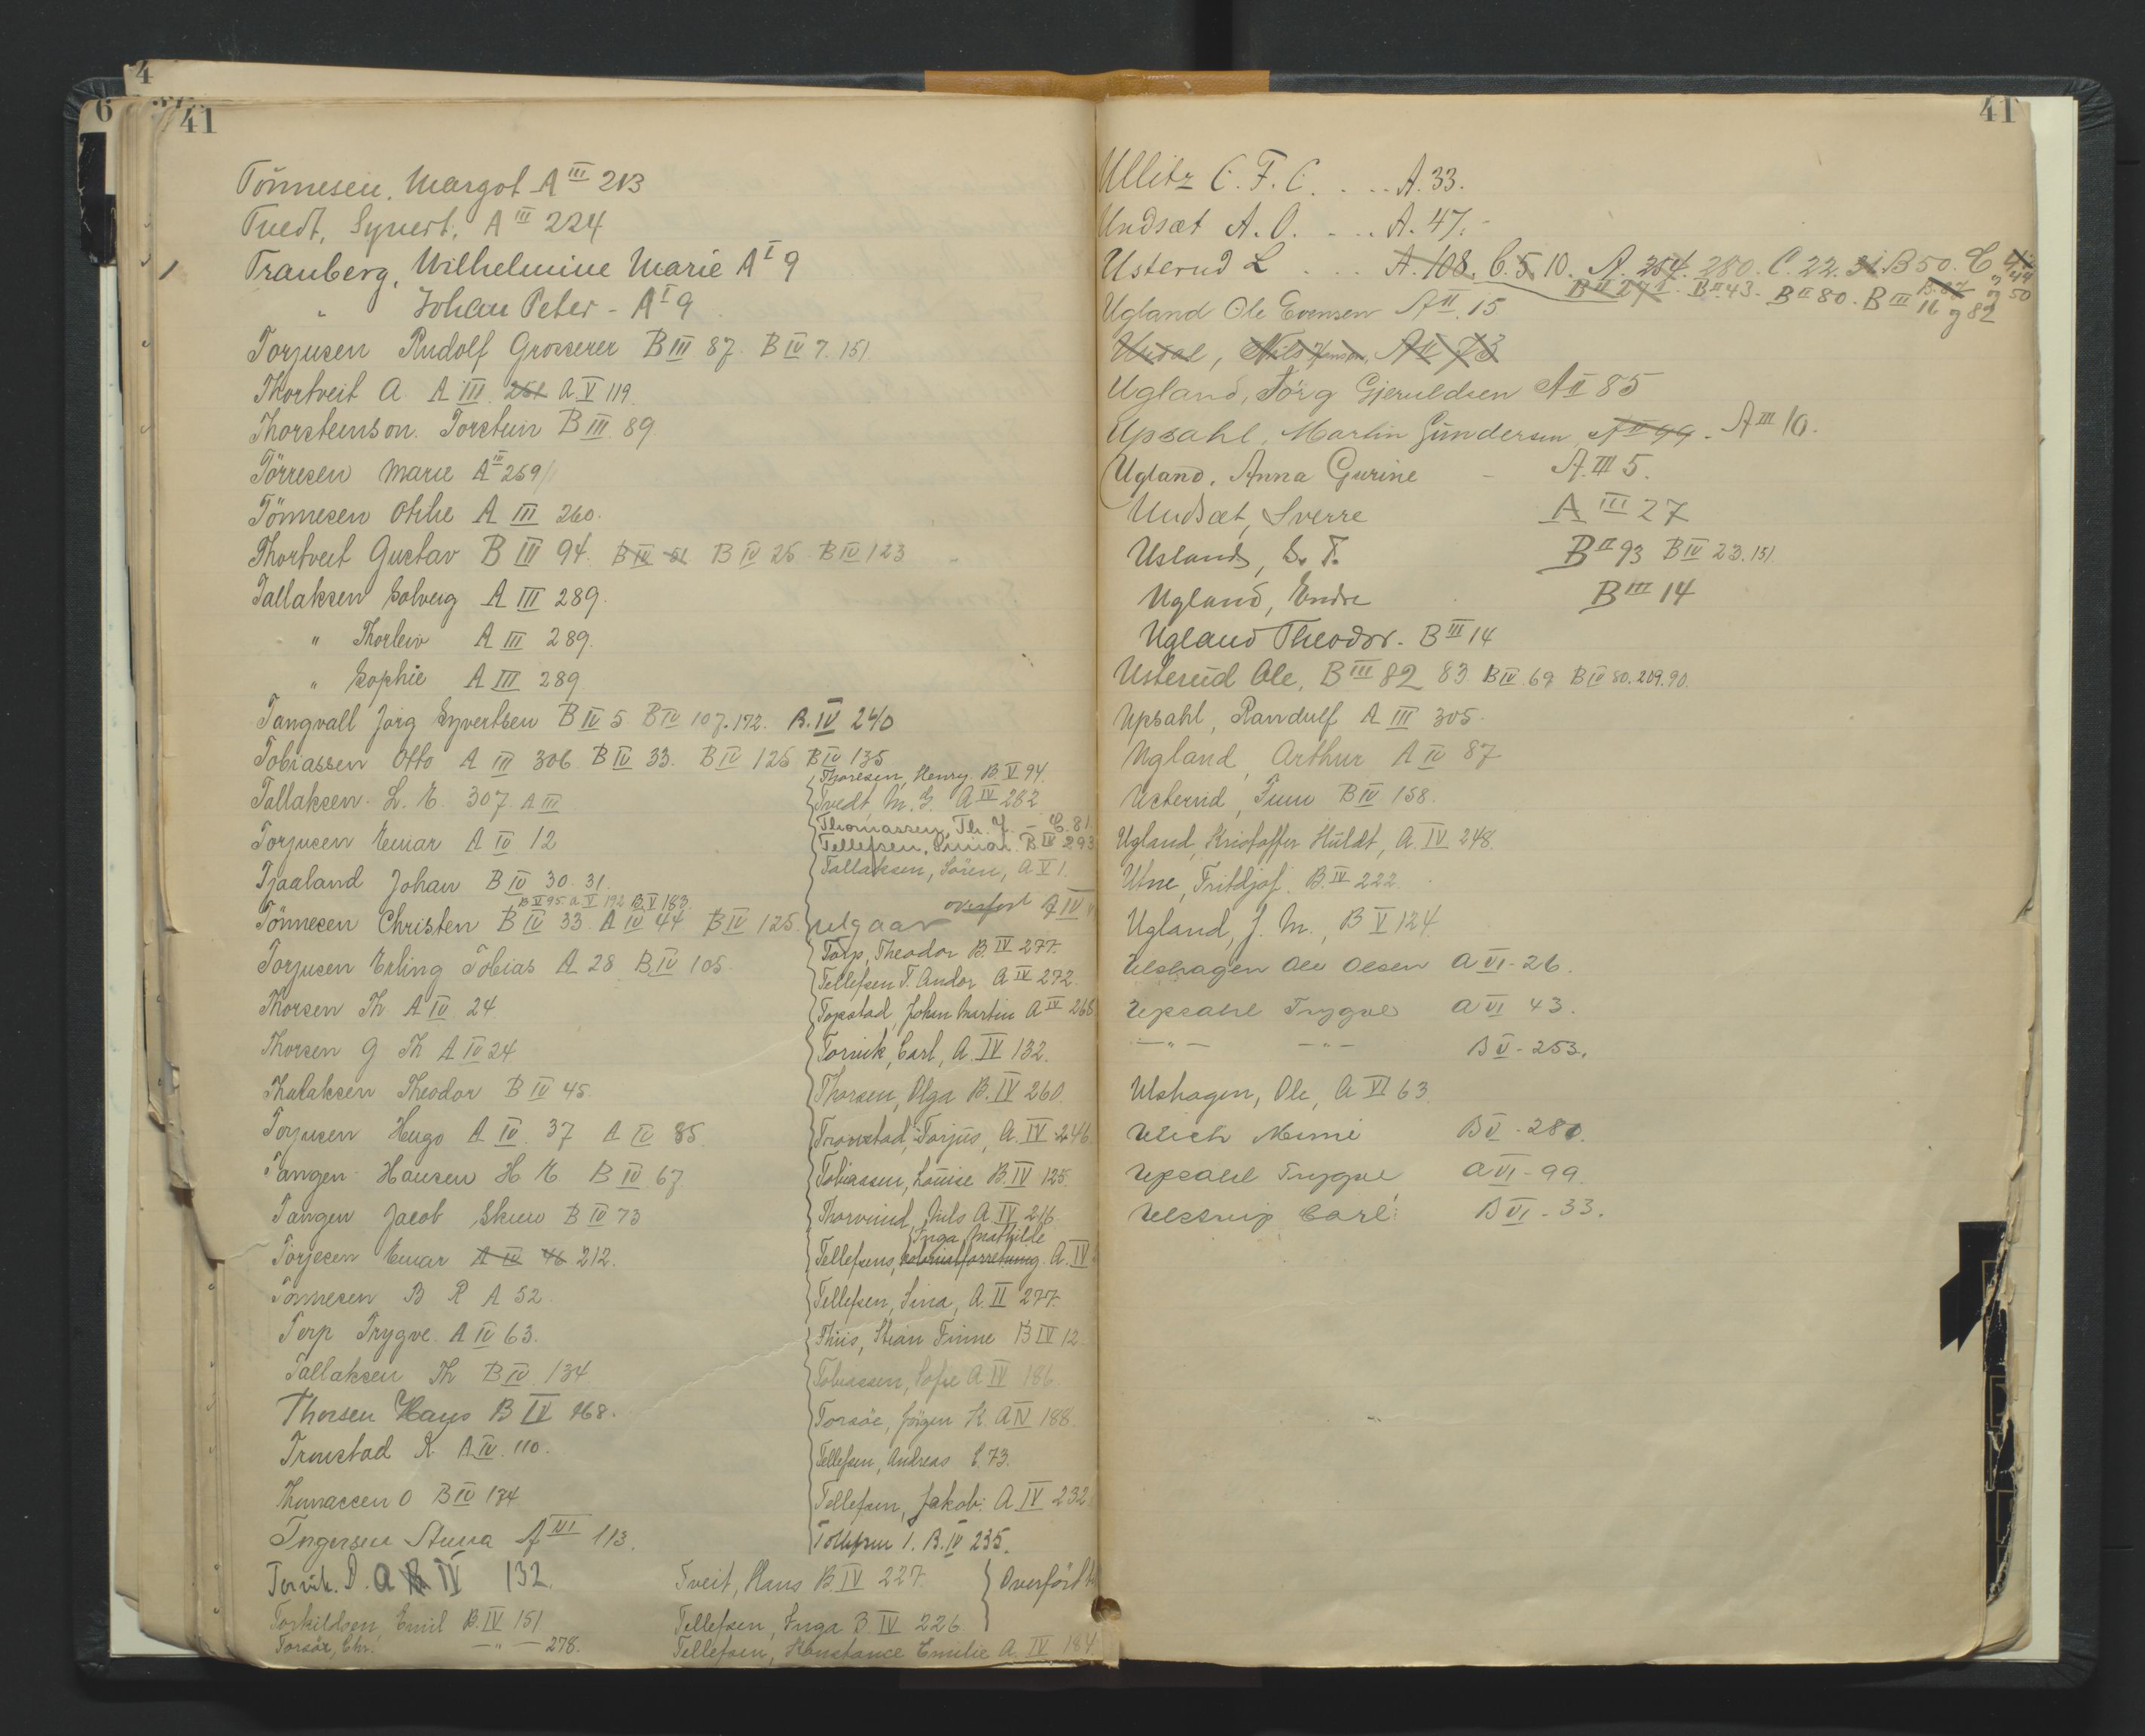 4
6
41
Tönnesen, Margot A III 213
Tvedt, Syvert, A III 224
Tranberg, Wilhelmine Marie A I 9
" Johan Peter - A I 9
Torjusen Rudolf Grosserer B III 87. B IV 7. 151
Thortveit A. A III 251 A V 119
Thorsteinson. Torstein B III 89
Törresen Marie A III 259
Tönnesen Othe A III 260.
Thortveit Gustav B III 94. B IV 21 B IV 25 B IV 123
Tallaksen Solveig A III 289.
" Thorleiv A III 289.
" Sophie A III 289
Tangvall Jörg Syvertsen B IV 5 B IV 107.172. B. IV 240
Tobiassen Otto A III 306 B IV 33. B IV 125 B IV 135
Tallaksen. L. E. 307 A III
Torjusen Einar A IV 12
Tjaaland Johan B IV 30. 31.
B V 95 A V 192 B V 183
Tönnesen Christen B IV 33 A IV 44 B IV 125
Torjusen Erling Tobias A 28 B IV 105
Thorsen Th A IV 24
Thorsen G Th A IV 24
Theodor B IV 45
Torjusen Hugo A IV. 37 A IV 85
Tangen Hansen H E B IV 67
Tangen Jacob B IV 73
Torjesen Einar A IV 46 212.
Tönnesen B R A 52.
Torp Trygve A IV 63.
Tallaksen Th B IV 134
Thorsen Hans B IV 168.
Tronstad K. A IV. 110.
Thomassen O B IV 174
A VI 113.
Torvik. P. A IV 132.
Torkildsen, Emil B. IV 151
Torsöe, Chr. — " — 278.
Thoresen, Henry. B. V 94.
Tvedt, M. G. A IV 282
Thomassen, Th. J. - C. 81
Tellefsen, Einar. B IV 293
Tallaksen, Sören, A V 1.
utgaar overfört A IV
Torp, Theodor B. IV 277.
Tellefsen T. Andor A IV 272
Topstad, Johan Martin A IV 268
Torvik, Carl, A. IV 132.
Thorsen, Olga B. IV 260.
Tronstad, Torjus, A. IV 246
Tobiassen, Louise B. IV 125.
Thorvind, Nils A IV 216
Inga Mathilde
Tellefsens, kolonialforretning. A. IV
Tellefsen, Sina, A. II 277.
Thiis, Stian Finne B IV 12
Tobiassen, Sofie A IV 186.
Torsöe, Jörgen K. A IV 188.
Tellefsen, Andreas C. 73.
Tellefsen, Jakob: A IV 232
T. B. IV 235.
Tveit, Hans B. IV 227. Overfört
Tellefsen, Inga B. IV 226
Tellefsen, Konstance Emilie A. IV 184
41
Ullitz C. F. C. . . . A. 33.
Undsæt A. O. . . . A. 47.
Usterud L . . . . A. 108. C. 5. 10. A. 254. 280. C. 22. 31. B 50. C
B II 271. B II 43. B II 80. B III 16 og 82
Ugland Ole Evensen A II. 15
Uidal, Nils Hansen, A II 73
Ugland, Törg Gjeruldsen A II 85
Upsahl, Martin Gundersen A II 99. A III 10.
Ugland, Anna Gurine - A. III 5.
Undsæt, Sverre A III 27
Usland, S. T. B II 93 B IV 23. 151
Ugland, Endre B III 14
Ugland Theodor. B III 14
Usterud Ole, B III 82 83 B IV. 69 B IV 80. 209. 90.
Upsahl, Randulf A III 305.
Ugland, Arthur A IV 87
Usterud, B IV 158.
Ugland, Kristoffer Huldt, A. IV 248.
Utne, Fritdjof. B. IV 222
Ugland, J. M., B V 124
Ulshagen Ole Olsen A VI - 26.
Upsahl Trygve A VI 43.
— " — — " — B V - 253.
Ulshagen, Ole, A VI 63
Ulich Mimi B V - 280.
Upsahl Trygve A VI - 99.
Ulstrup Carl B VI - 33.